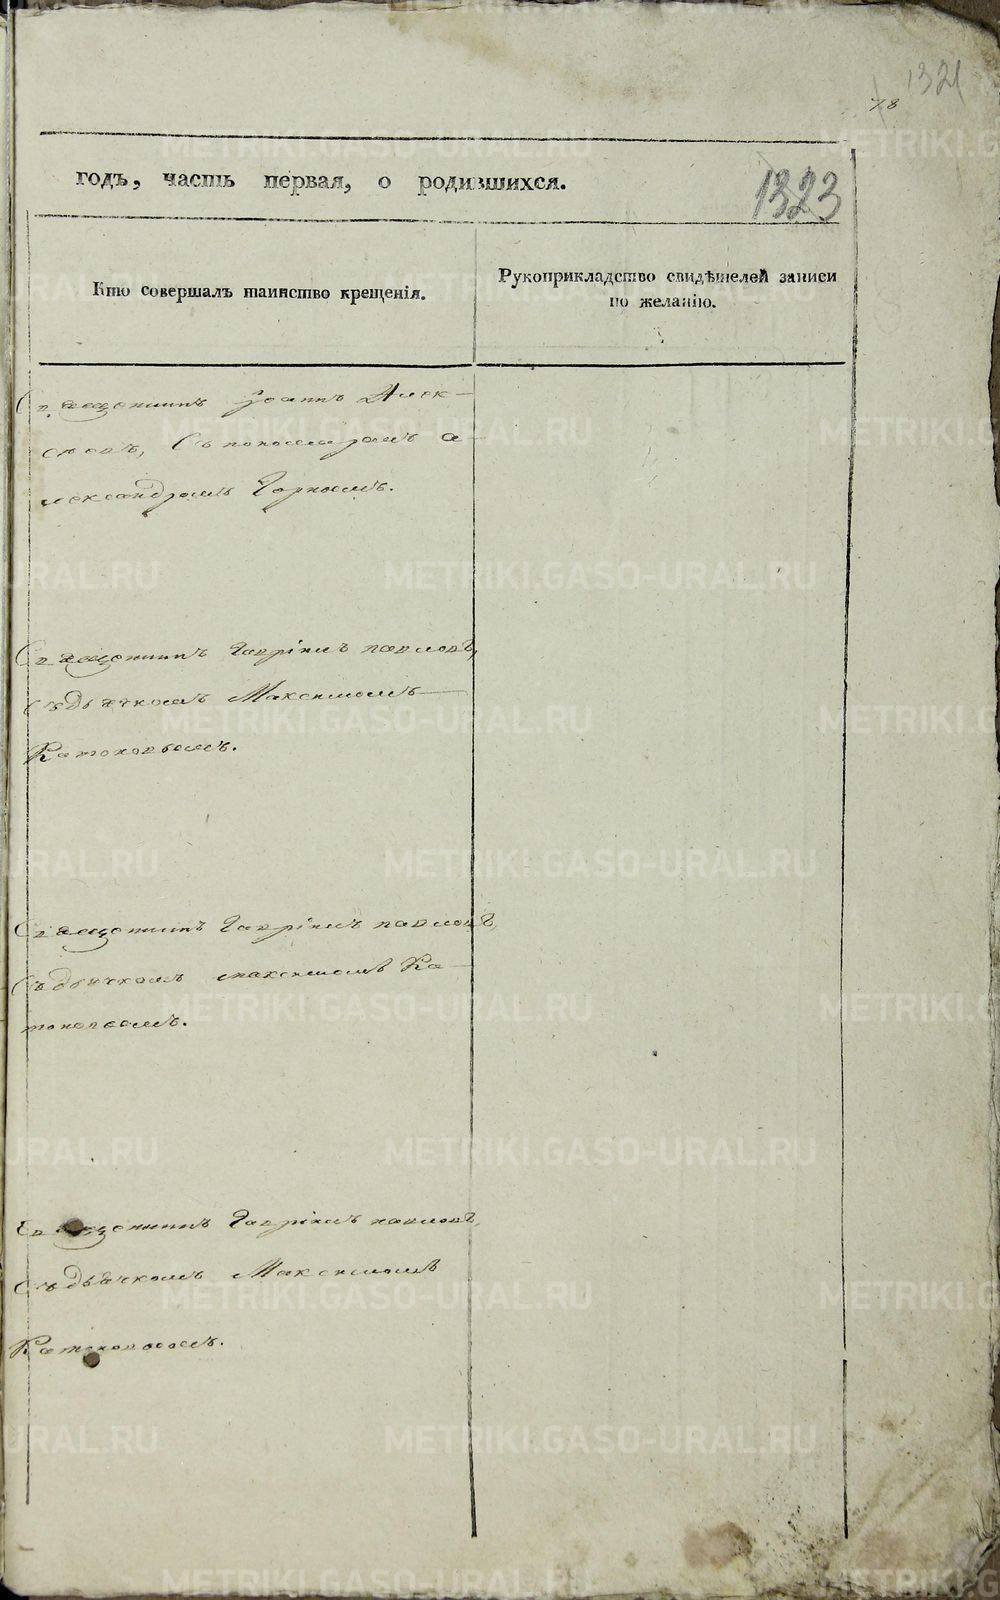 1321
78
годъ, часть первая, о родившихся.
1323
Кто совершалъ таинство крещенія.
Рукоприкладство свидѣтелей записи
по желанію.
Священникъ Іоаннъ Алек-
сѣевъ, Съ пономаремъ а-
лександромъ Горномъ.
Священникъ Гавріилъ павловъ,
съ дьячкомъ Максимомъ
Катоновомъ.
Священникъ Гавріилъ павловъ,
Съ дьячкомъ максимомъ Ка-
тоновомъ.
Священникъ Гавріилъ павловъ,
Съ дьячкомъ Максимомъ
Катоновомъ.
METRIKI.GASO-URAL.RU